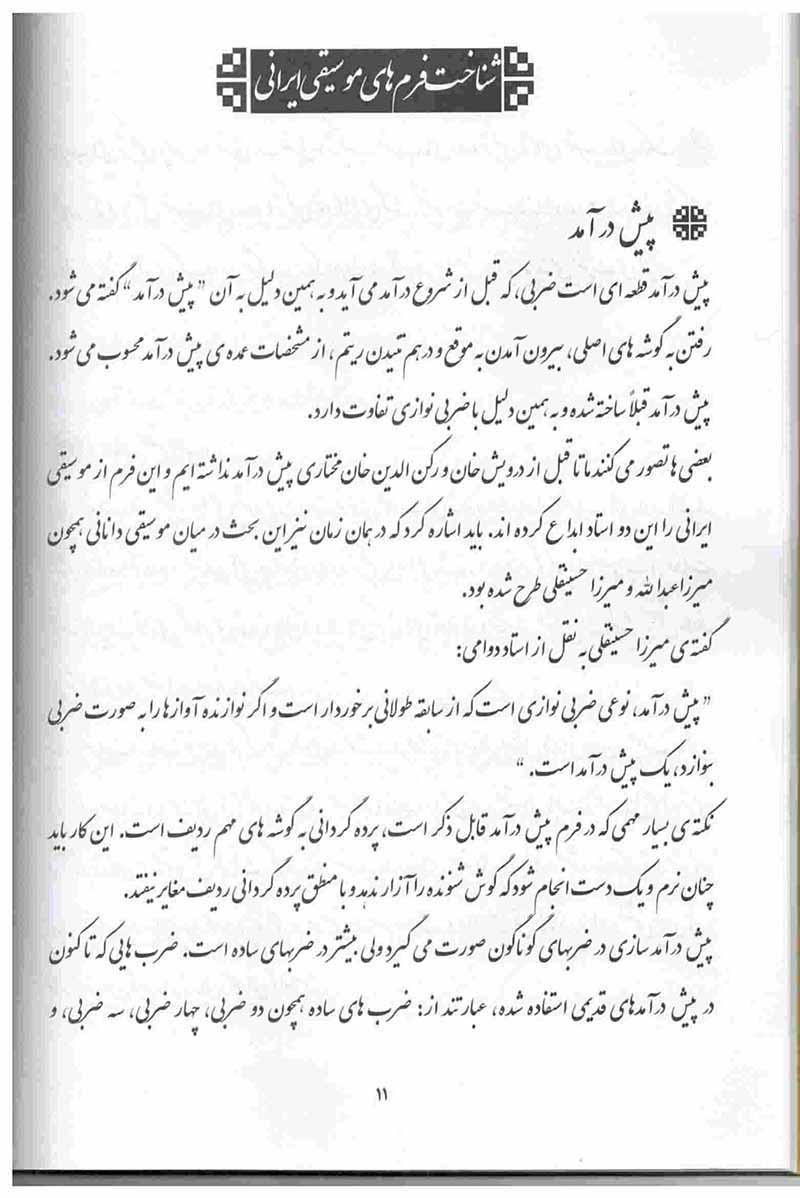 شناخت فرم های موسیقی ایرانی
پیش درآمد
پیش درآمد قطعه ای است ضربی، که قبل از شروع درآمد می آید و به همین دلیل به آن ” پیش درآمد “ گفته می شود.
رفتن به گوشه های اصلی، بیرون آمدن به موقع و درهم تنیدن ریتم، از مشخصات عمده ی پیش درآمد محسوب می شود.
پیش درآمد قبلاً ساخته شده و به همین دلیل با ضربی نوازی تفاوت دارد.
بعضی ها تصور می کنند ما تا قبل از درویش خان و رکن الدین خان مختاری پیش درآمد نداشته ایم و این فرم از موسیقی
ایرانی را این دو استاد ابداع کرده اند. باید اشاره کرد که در همان زمان نیز این بحث در میان موسیقی دانانی همچون
میرزا عبدالله و میرزا حسینقلی طرح شده بود.
گفته ی میرزا حسینقلی به نقل از استاد دوامی:
” پیش درآمد، نوعی ضربی نوازی است که از سابقه طولانی برخوردار است و اگر نوازنده آوازها را به صورت ضربی
بنوازد، یک پیش درآمد است. “
نکته ی بسیار مهمی که در فرم پیش درآمد قابل ذکر است، پرده گردانی به گوشه های مهم ردیف است. این کار باید
چنان نرم و یک دست انجام شود که گوش شنونده را آزار ندهد و با منطق پرده گردانی ردیف مغایر نیفتد.
پیش درآمد سازی در ضربهای گوناگون صورت می گیرد ولی بیشتر در ضربهای ساده است. ضرب هایی که تا کنون
در پیش درآمدهای قدیمی استفاده شده، عبارتند از: ضرب های ساده همچون دو ضربی، چهار ضربی، سه ضربی، و
۱۱